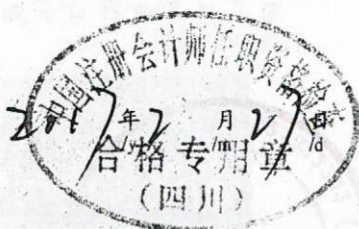 中国注册会计师任职资格检查
2017年2月27日
/y /m /d
合格专用章
(四川)